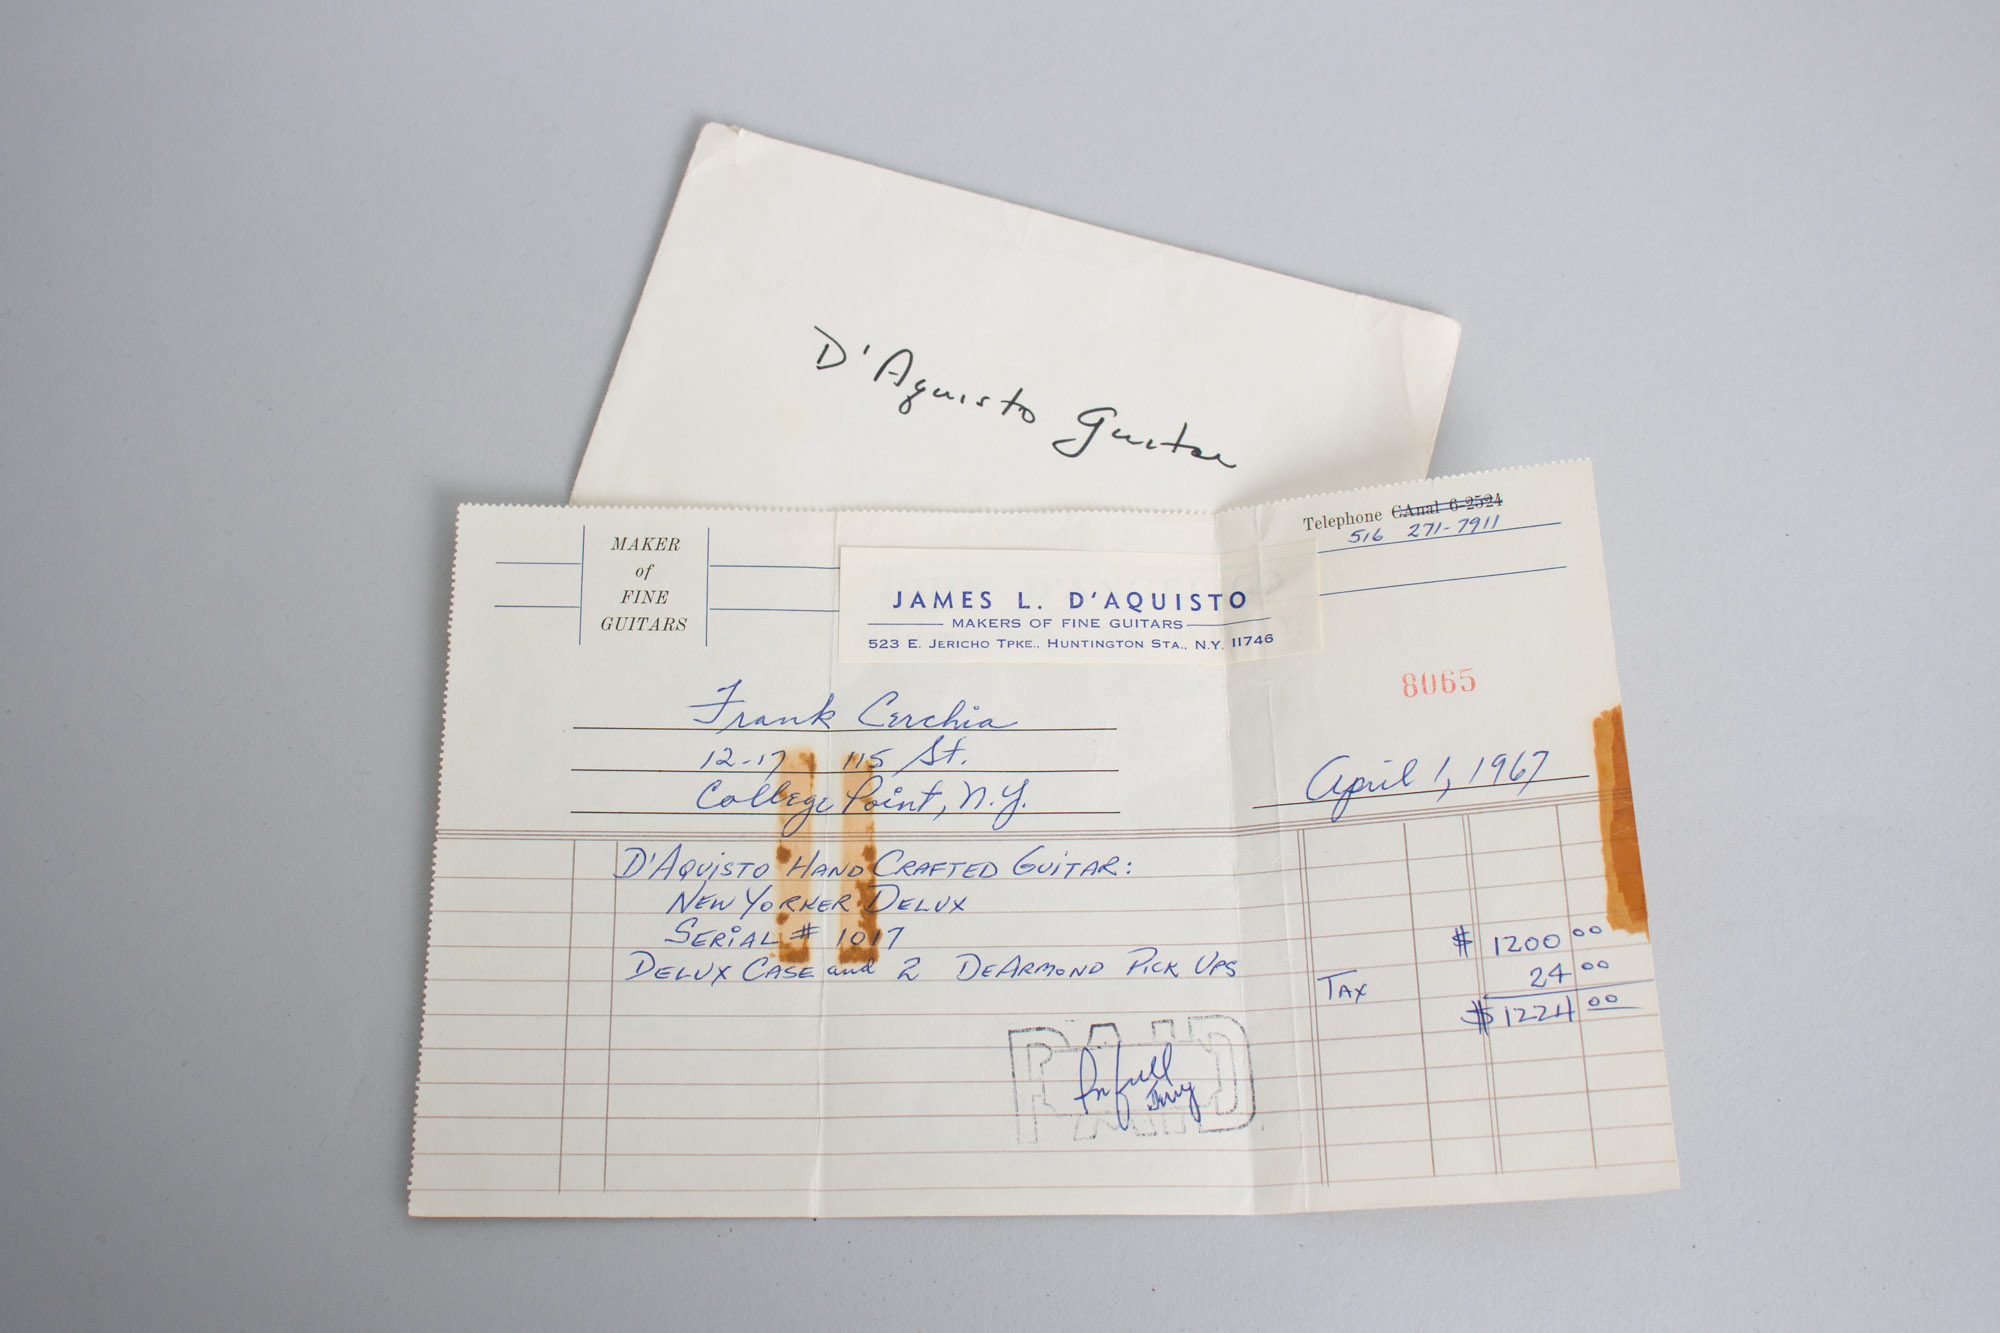 D'Aquisto Guitar
Telephone CAnal 6-2524
516 271-7911
MAKER
of
FINE
GUITARS
JAMES L. D'AQUISTO
MAKERS OF FINE GUITARS
523 E. JERICHO TPKE., HUNTINGTON STA., N.Y. 11746
8065
Frank Cerchia
12-17 115 St.
College Point, N.Y.
April 1, 1967
D'AQUISTO HAND CRAFTED GUITAR:
NEW YORKER DELUX
SERIAL # 1017
DELUX CASE and 2 DEARMOND PICK UPS
$ 1200 00
TAX 24 00
$ 1224 00
PAID
In full